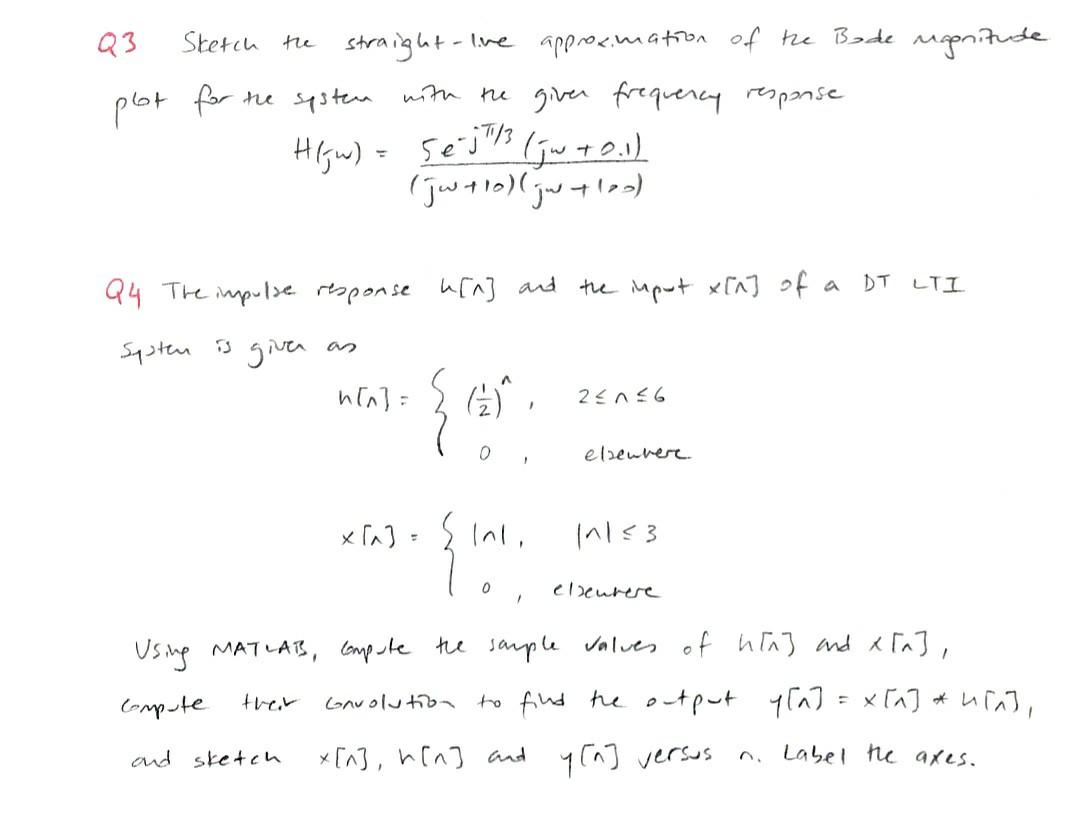 Q3 Sketch the straight-line approximation of the Bode magnitude
plot for the system with the given frequency response
H(jw) = 5e^-jπ/3 (jw + 0.1) / (jw+10)(jw+100)
Q4 The impulse response h[n] and the input x[n] of a DT LTI
System is given as
h[n] = { (1/2)^n , 2 ≤ n ≤ 6
0 , elsewhere
x[n] = { |n| , |n| ≤ 3
0 , elsewhere
Using MATLAB, compute the sample values of h[n] and x[n],
compute their convolution to find the output y[n] = x[n] * h[n],
and sketch x[n], h[n] and y[n] versus n. Label the axes.